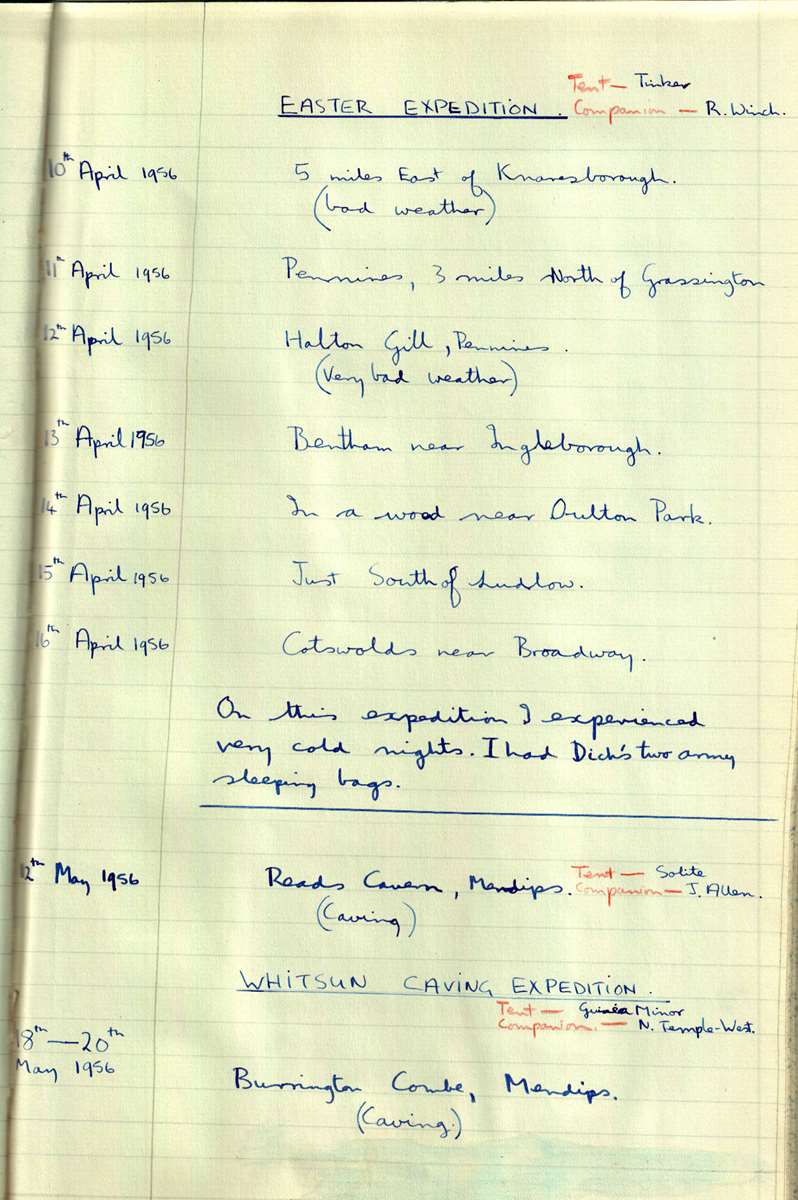 Tent — Tinker
EASTER EXPEDITION. Companion — R. Winch.
10th April 1956 5 miles East of Knaresborough.
(bad weather)
11th April 1956 Pennines, 3 miles North of Grassington
12th April 1956 Halton Gill, Pennines.
(Very bad weather)
13th April 1956 Bentham near Ingleborough.
14th April 1956 In a wood near Oulton Park.
15th April 1956 Just South of Ludlow.
16th April 1956 Cotswolds near Broadway.
On this expedition I experienced
very cold nights. I had Dick's two army
sleeping bags.
Tent — Solite
12th May 1956 Reads Cavern, Mendips. Companion — J. Allen.
(Caving)
WHITSUN CAVING EXPEDITION.
Tent — Guinea Minor
Companion. — N. Temple-West.
18th — 20th
May 1956
Burrington Combe, Mendips.
(Caving.)